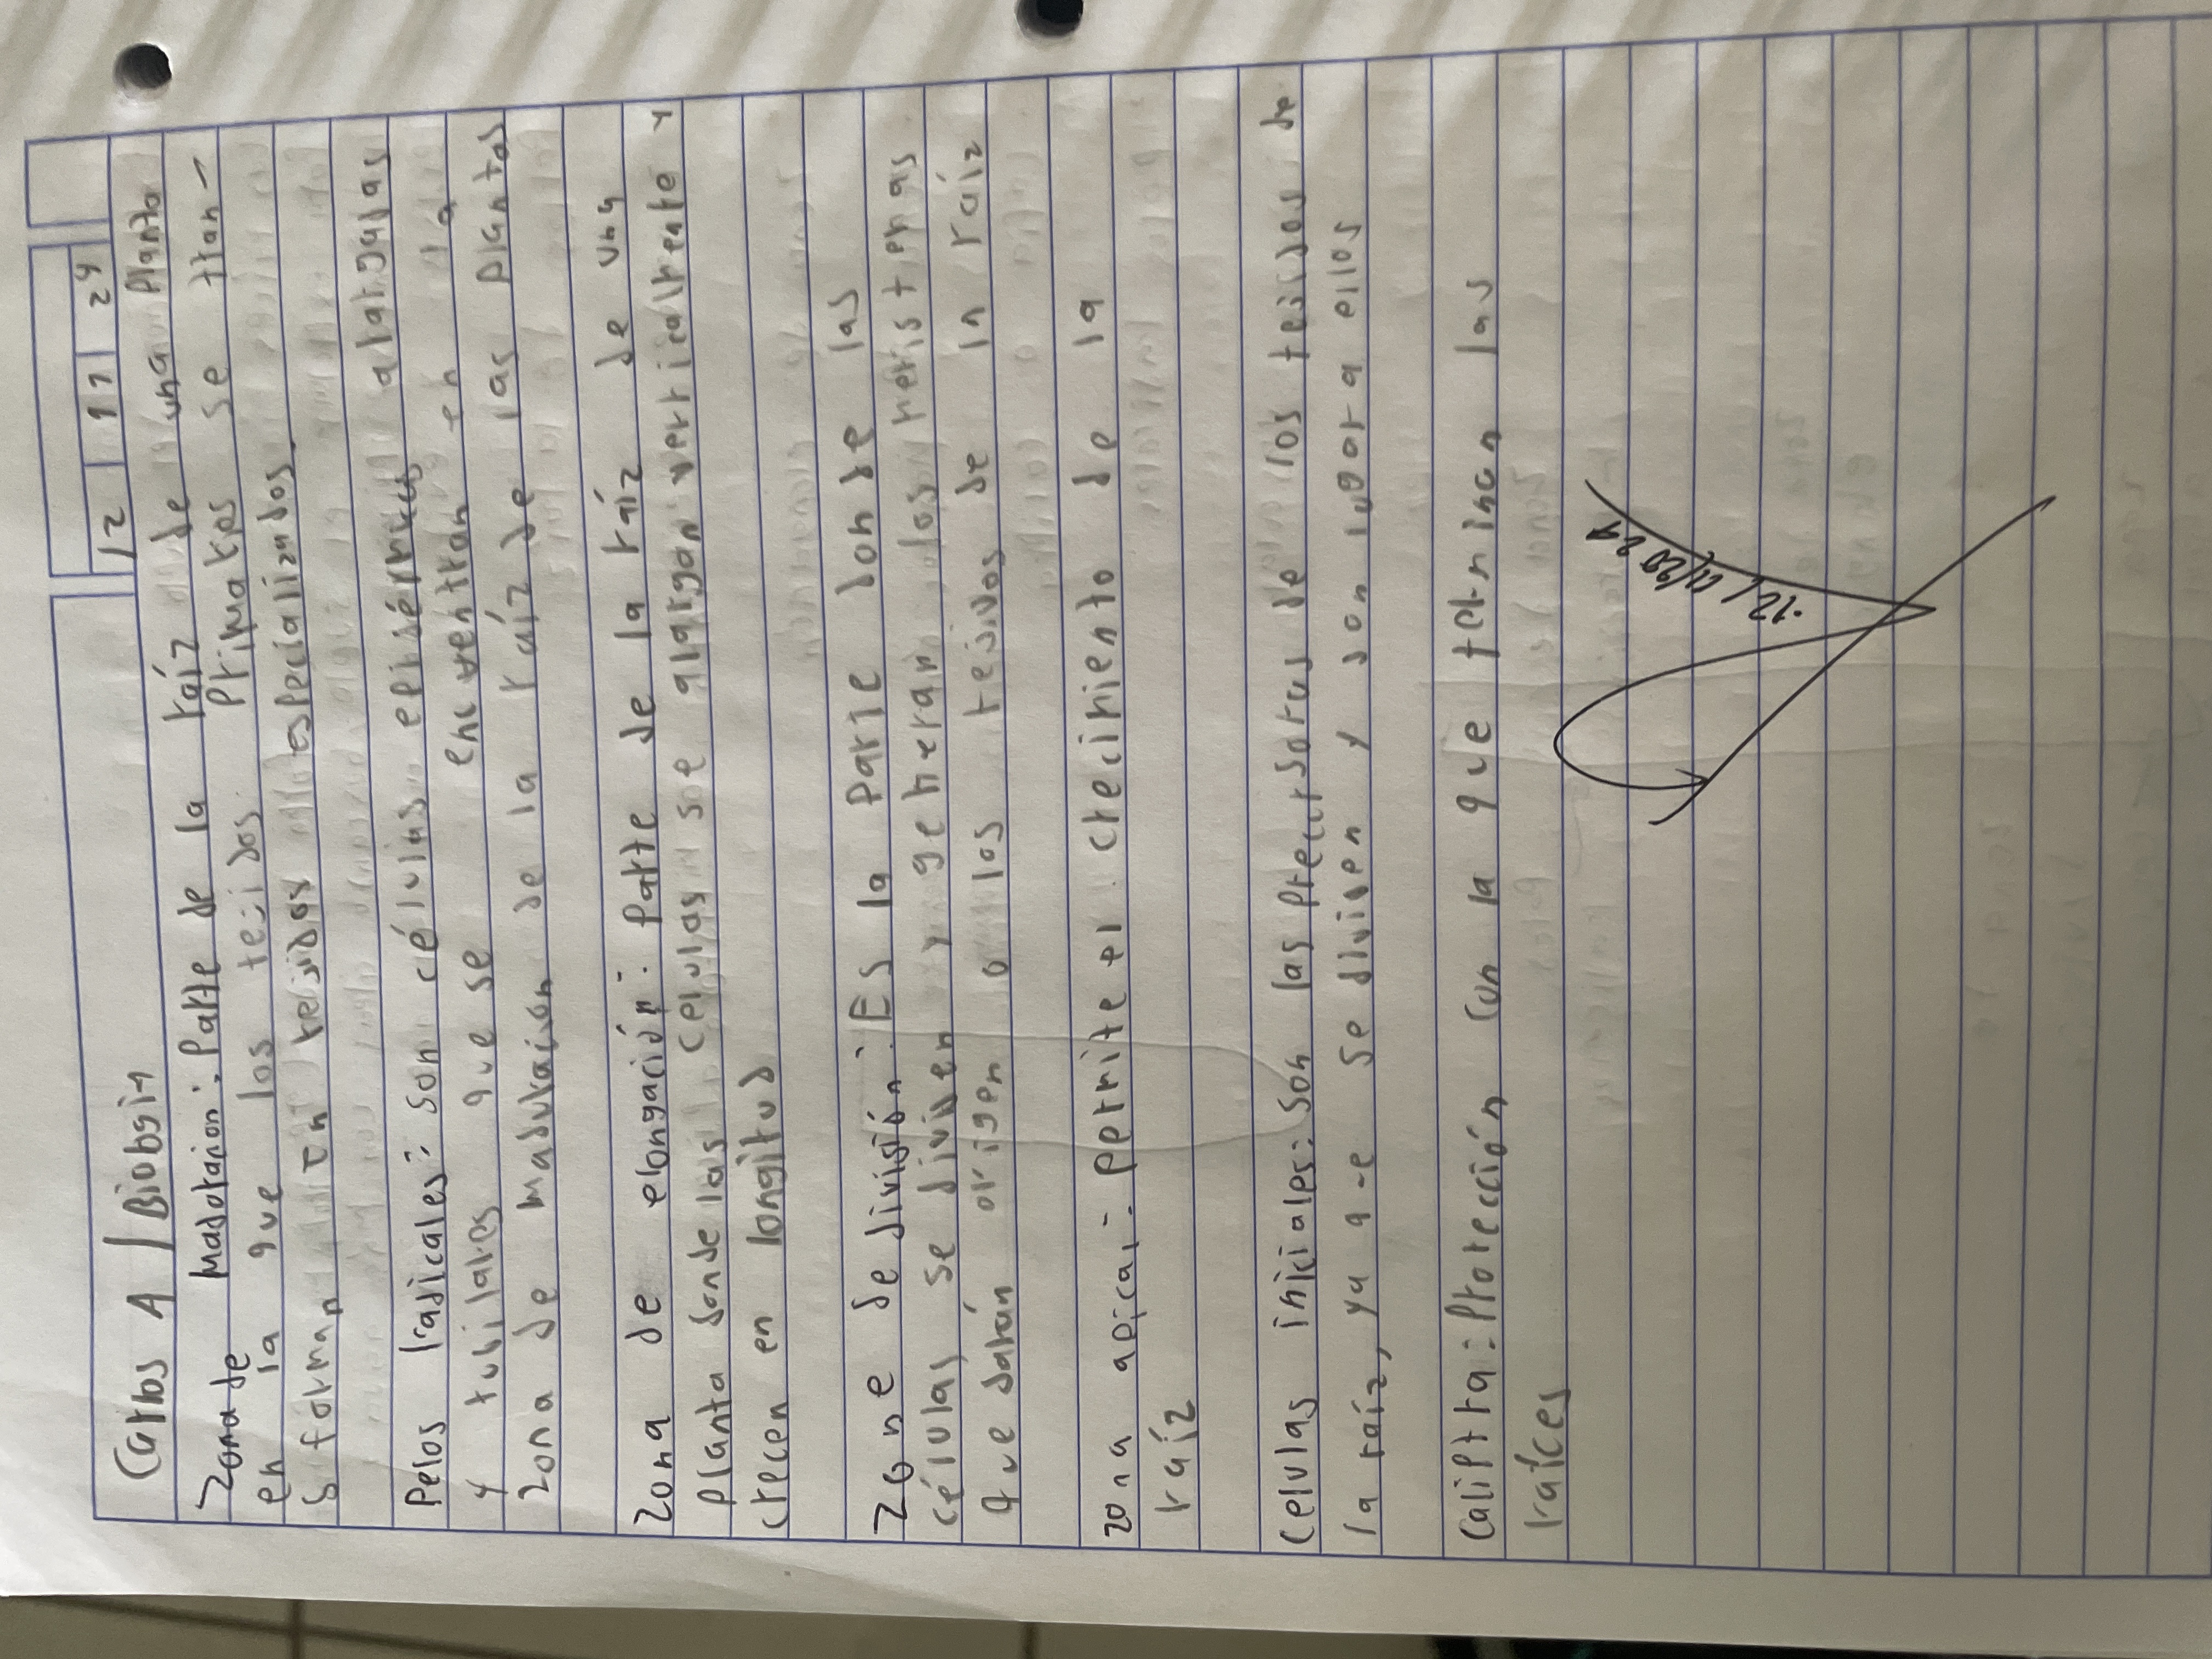 Carlos A / Biología
12 11 24
Zona de Maduración: Parte de la raíz de una planta
en la que los tejidos primarios se tran-
sforman en tejidos especializados.
Pelos radicales: son células epidérmicas alargadas
y tubulares que se encuentran en la
zona de maduración de la raíz de las plantas
Zona de elongación: Parte de la raíz de una
planta donde las celulas se alargan verticalmente y
crecen en longitud
Zona de división: Es la parte donde las
células se dividen y generan los meristemas
que darán origen a los tejidos de la raíz
zona apical: Permite el crecimiento de la
raíz
Celulas iniciales: Son las precursoras de los tejidos de
la raíz, ya que se dividen y dan lugar a ellos
Caliptra: Protección con la que terminan las
raíces
12/11/2024